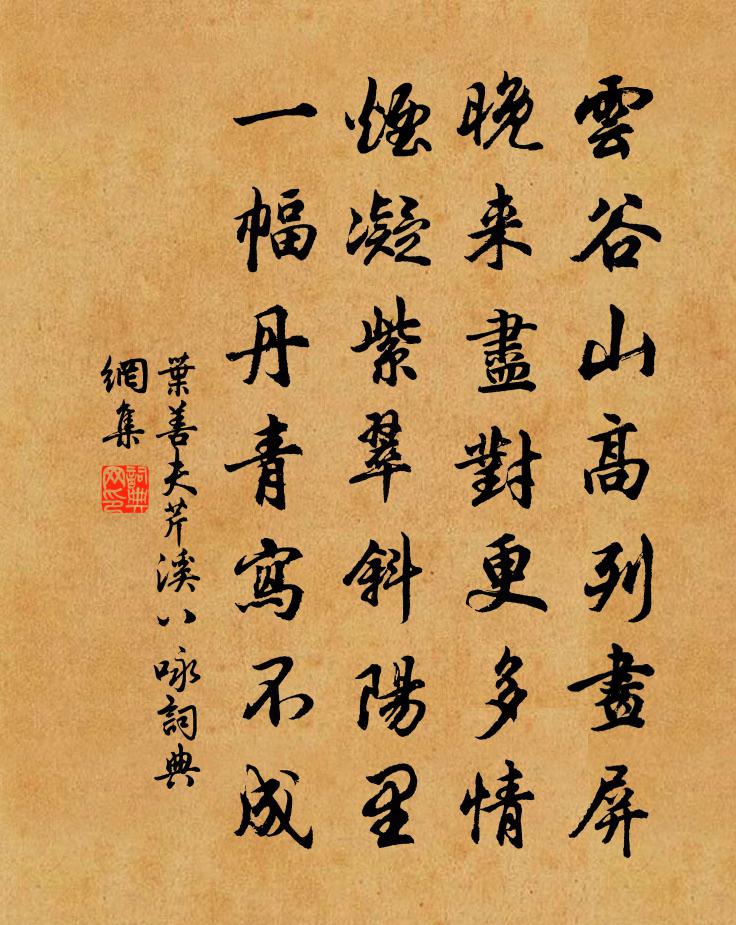 雲谷山高列畫屏
晚来盡對更多情
煙凝紫翠斜陽里
一幅丹青寫不成
葉善夫芹溪八咏詞典
網集
詞典
网印